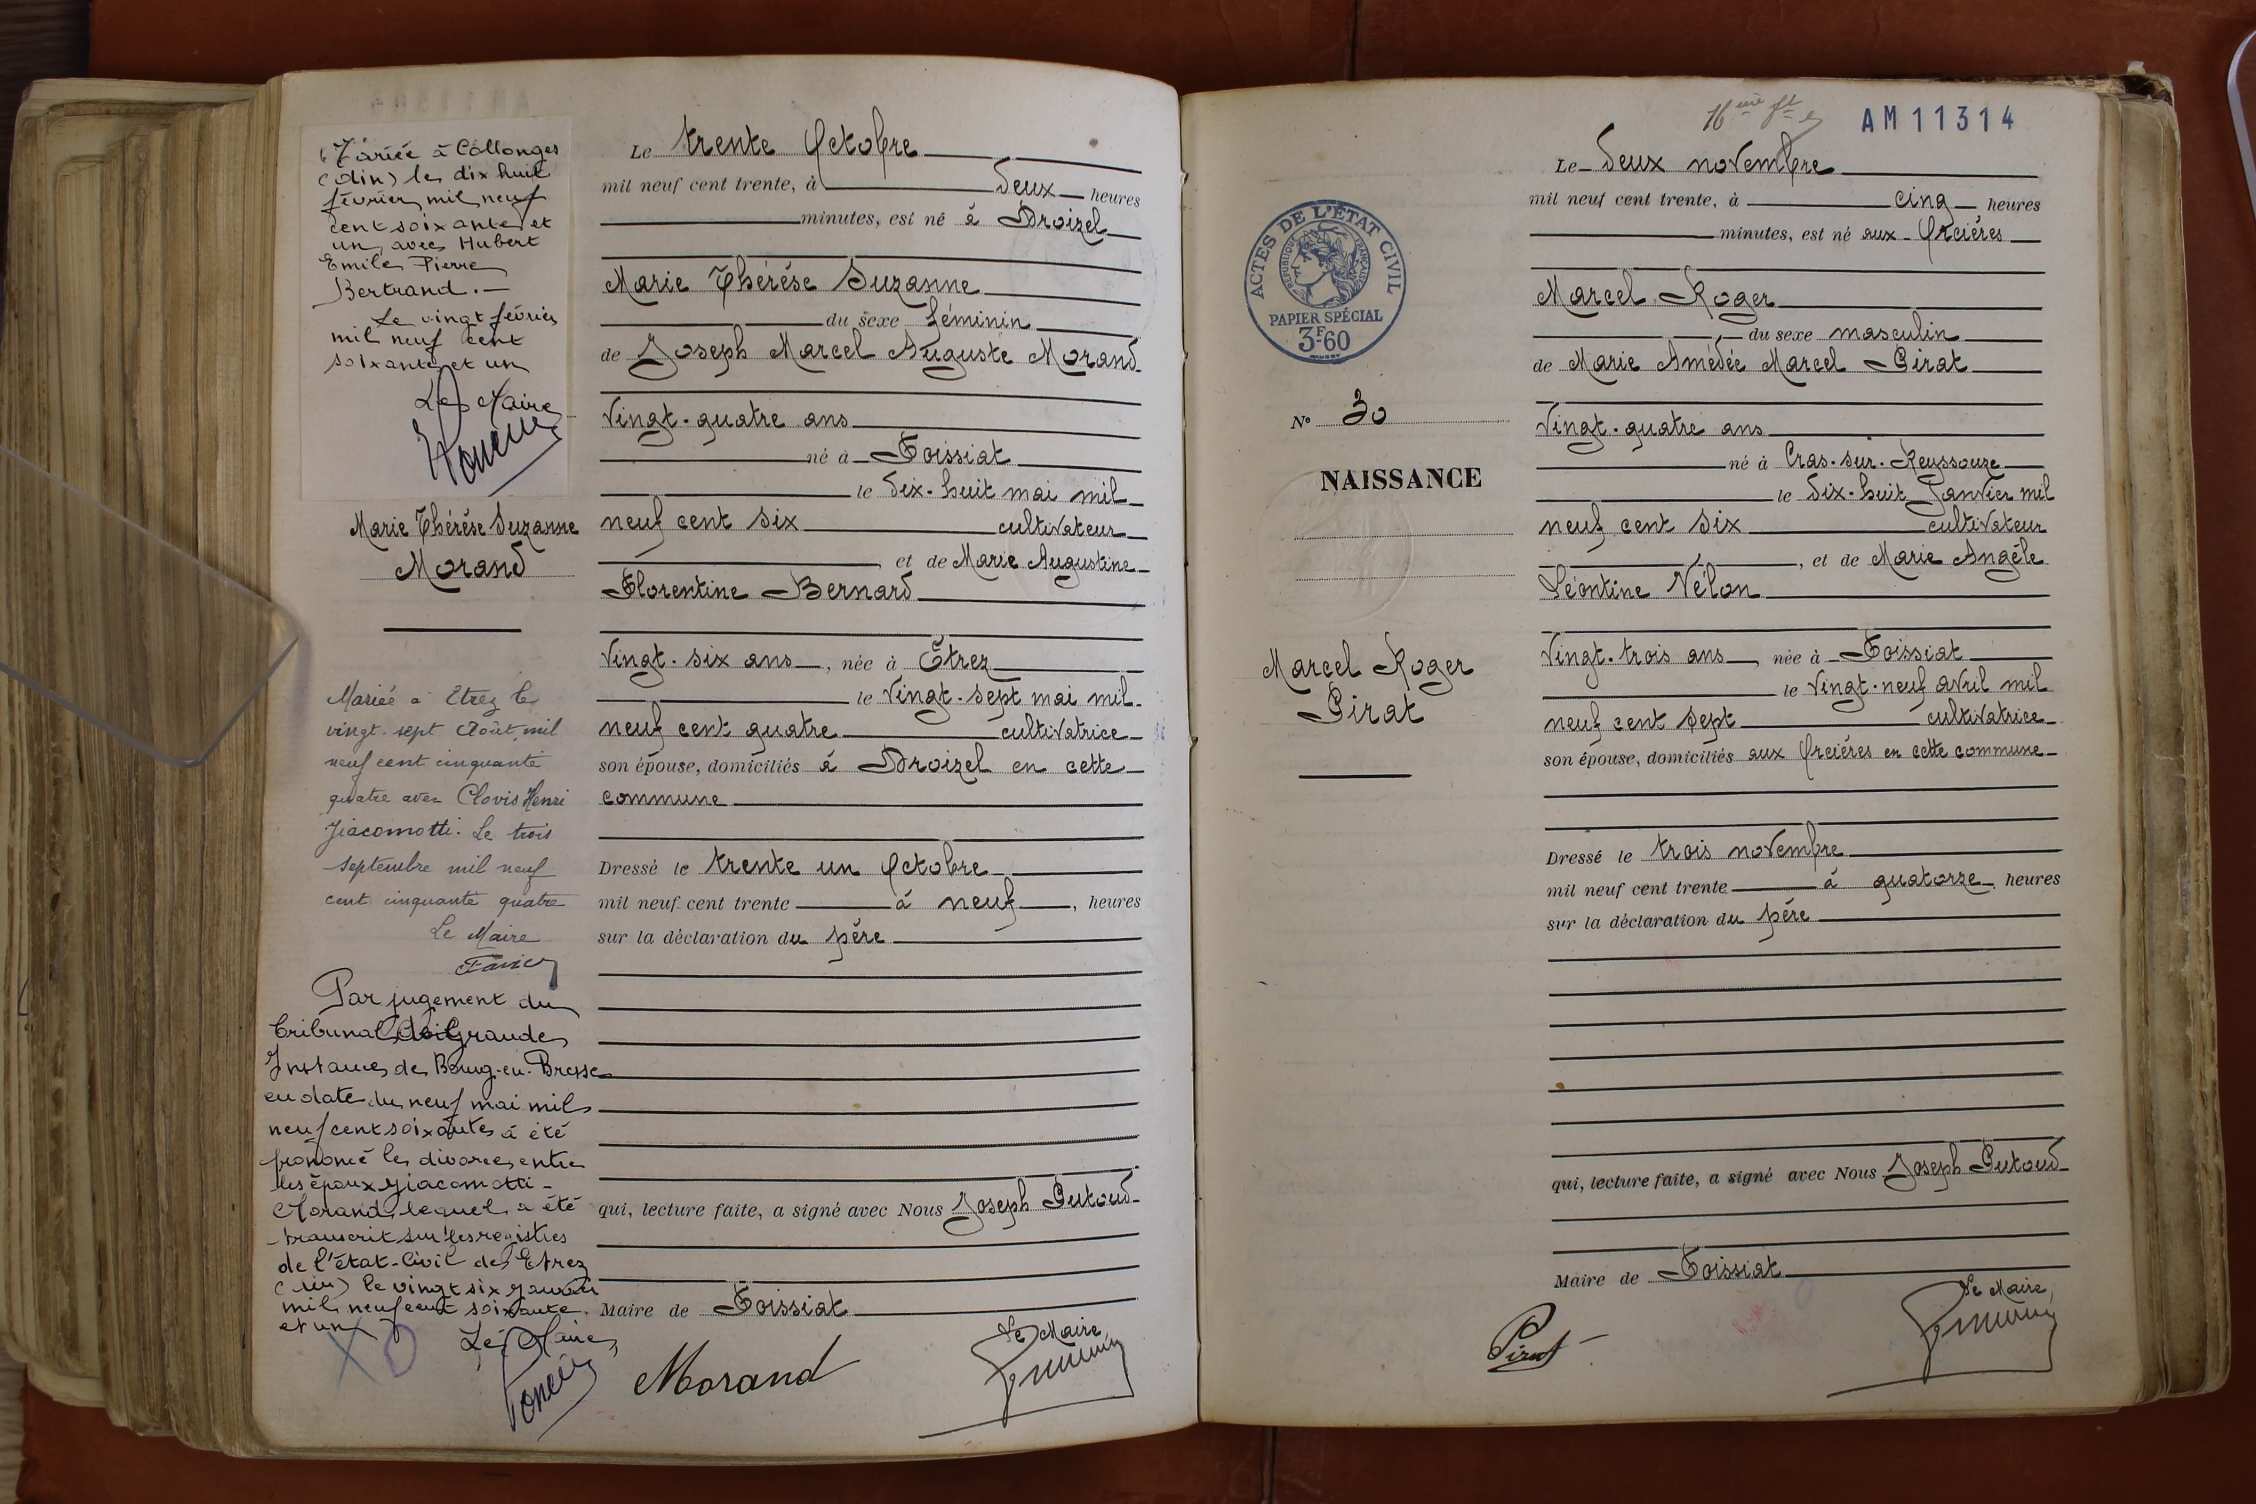 Mariée à Collonges
(Ain) le dix huit
février mil neuf
cent soixante et
un, avec Hubert
Emile Pierre
Bertrand.-
Le vingt février
mil neuf cent
soixante et un
Le Maire
Marie Thérèse Suzanne
Morand
Mariée à Etrez le
vingt-sept Août mil
neuf cent cinquante
quatre avec Clovis Henri
Giacomotti. Le trois
septembre mil neuf
cent cinquante quatre
Le Maire
Par jugement du
Tribunal de Grande
Instance de Bourg-en-Bresse
en date du neuf mai mil
neuf cent soixante a été
prononcé le divorce entre
les époux Giacomotti-
Morand, lequel a été
transcrit sur les registres
de l'état-Civil de Etrez
(Ain) le vingt six janvier
mil neuf cent soixante
et un
Le Maire
Le trente Octobre
mil neuf cent trente, à deux heures
minutes, est né à Droizel
Marie Thérèse Suzanne
du sexe féminin
de Joseph Marcel Auguste Morand
vingt-quatre ans
né à Foissiat
le dix-huit mai mil
neuf cent six cultivateur
et de Marie Augustine
Florentine Bernard
vingt-six ans, née à Étrez
le vingt-sept mai mil
neuf cent quatre cultivatrice
son épouse, domiciliés à Droizel en cette
commune
Dressé le trente un Octobre
mil neuf cent trente à neuf, heures
sur la déclaration du père
qui, lecture faite, a signé avec Nous Joseph Putoud
Maire de Foissiat
Le Maire,
Morand
AM11314
ACTES DE L'ÉTAT CIVIL
RÉPUBLIQUE FRANÇAISE
PAPIER SPÉCIAL
3F60
N° 30
NAISSANCE
Marcel Roger
Pirat
Le deux novembre
mil neuf cent trente, à cinq heures
minutes, est né aux Orcières
Marcel Roger
du sexe masculin
de Marie Amédée Marcel Pirat
vingt-quatre ans
né à Cras-sur-Reyssouze
le dix-huit Janvier mil
neuf cent six cultivateur
, et de Marie Angèle
Léontine Vélon
vingt-trois ans, née à Foissiat
le vingt-neuf avril mil
neuf cent sept cultivatrice
son épouse, domiciliés aux Orcières en cette commune
Dressé le trois novembre
mil neuf cent trente à quatorze heures
sur la déclaration du père
qui, lecture faite, a signé avec Nous Joseph Putoud
Maire de Foissiat
Le Maire,
Pirat